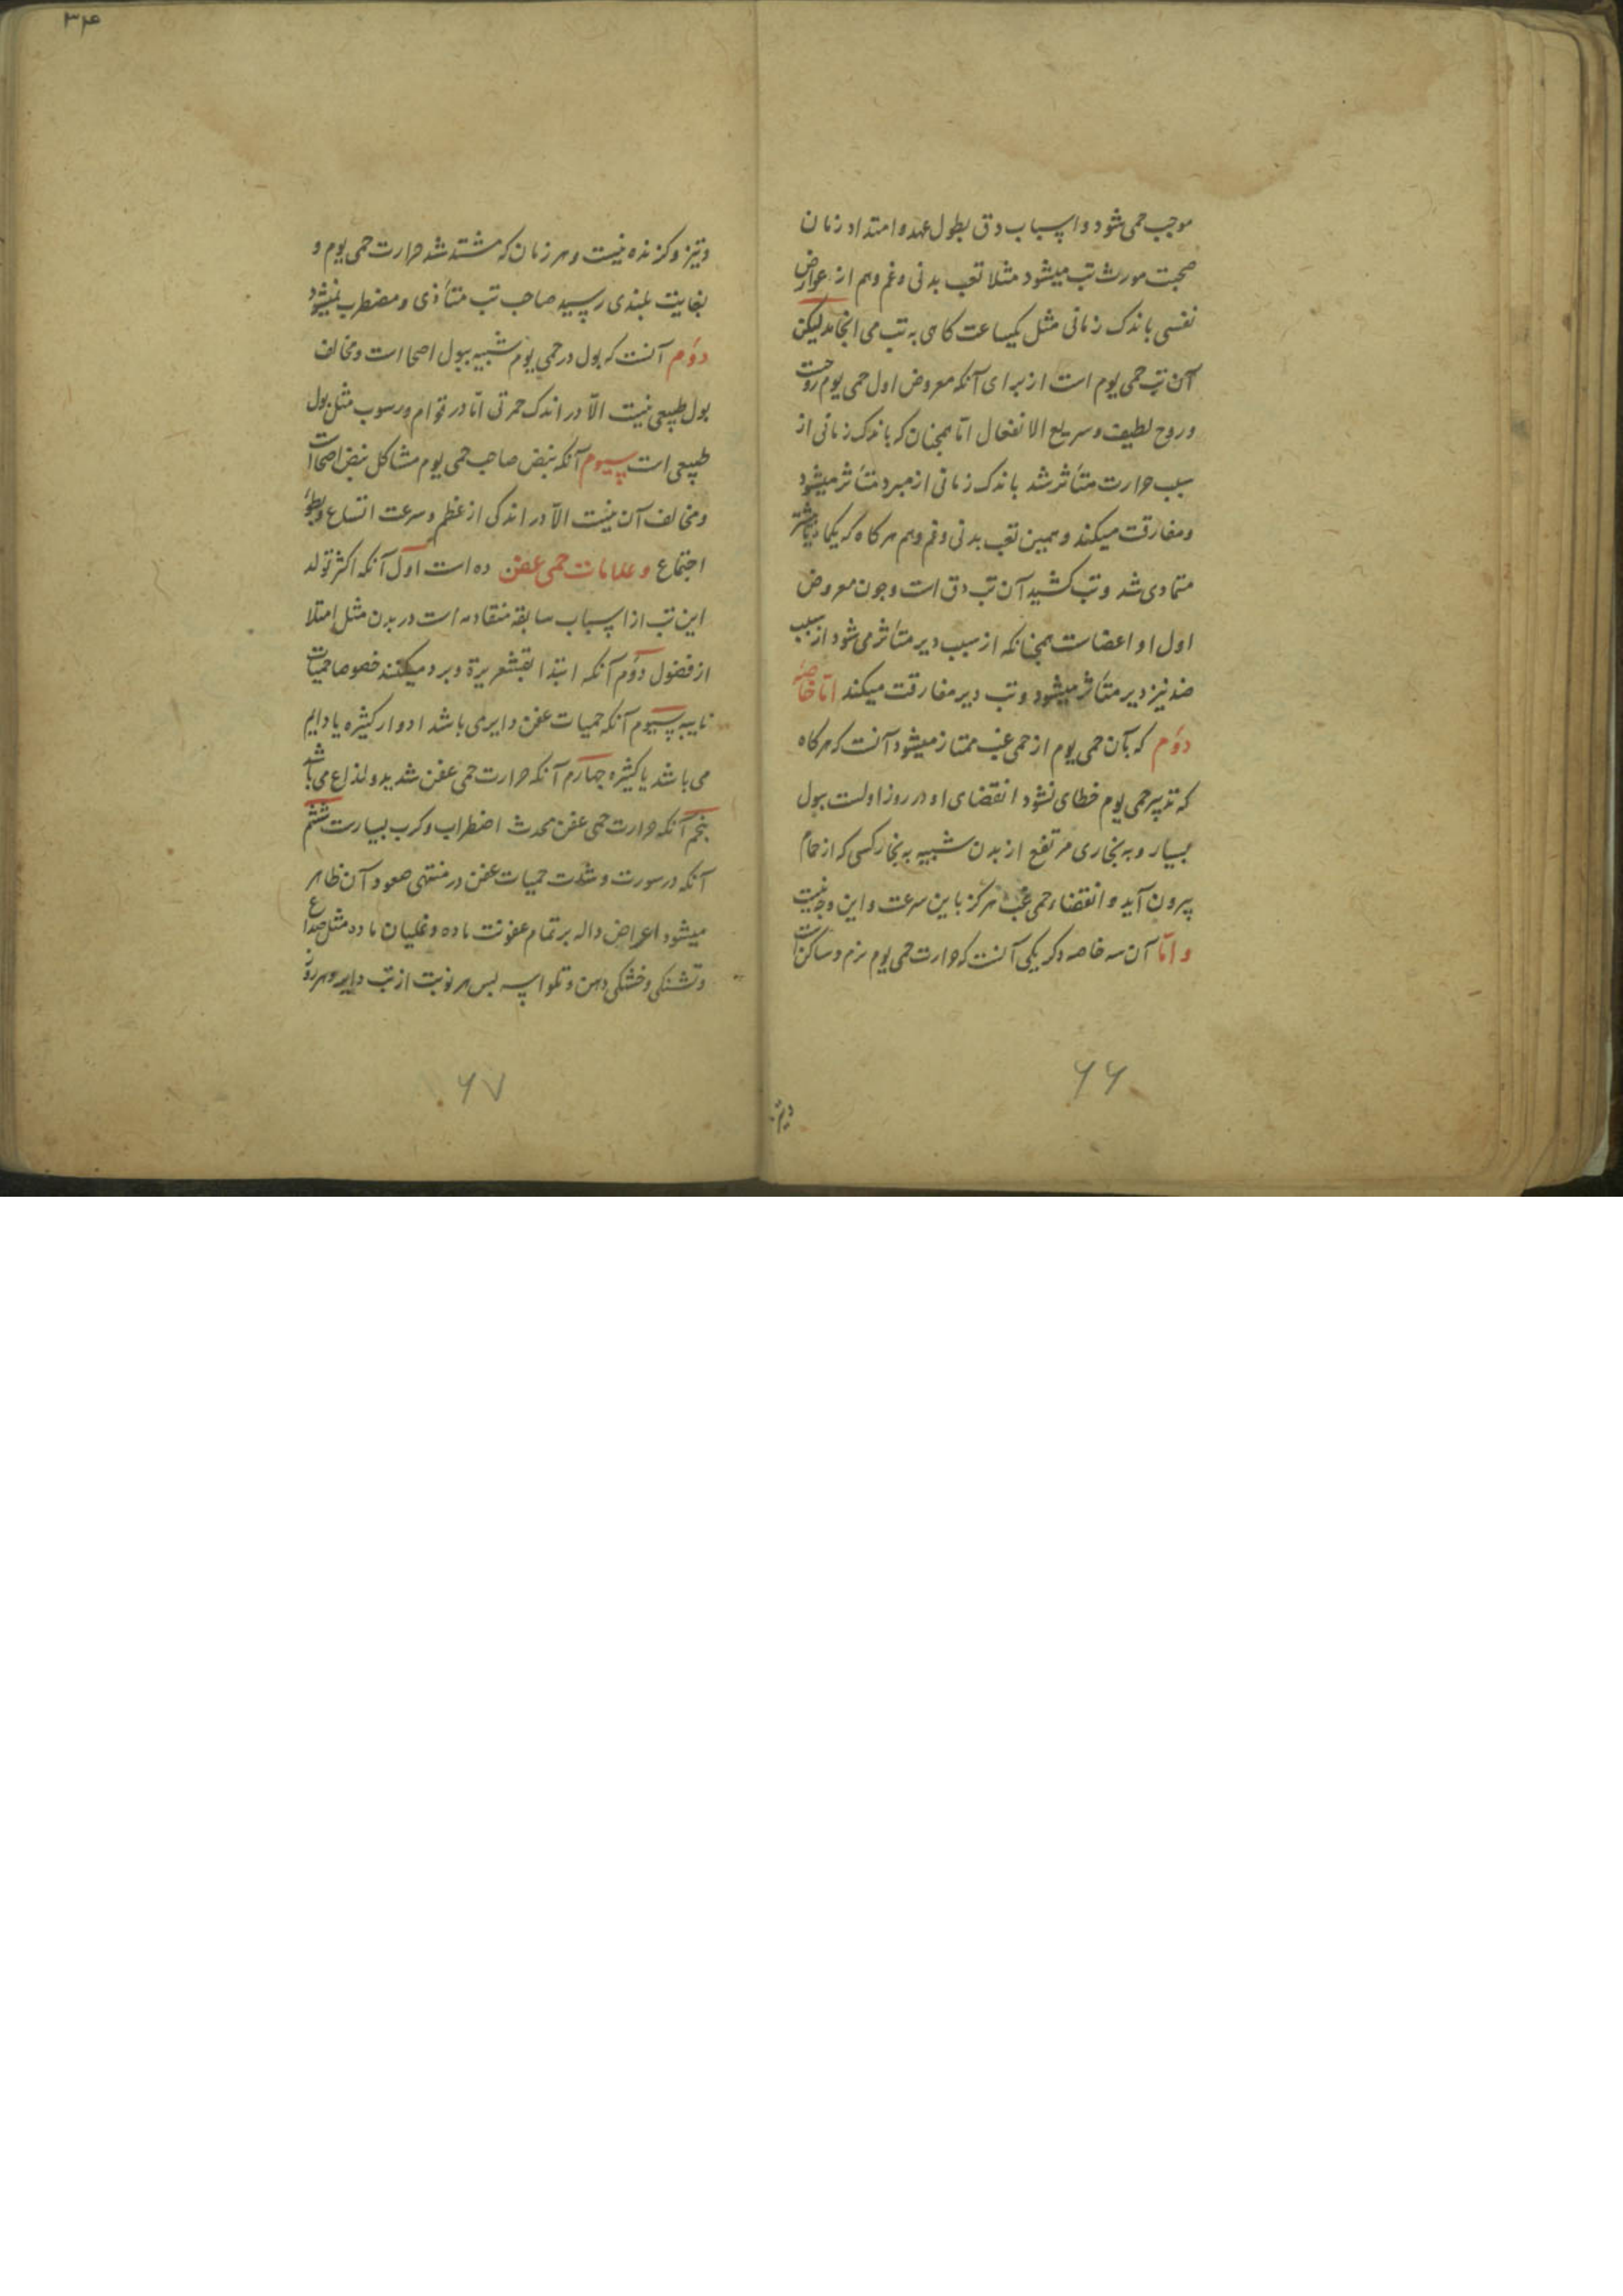 موجب حمی شود و اسباب دق بطول عهد و امتداد زمان
صحبت مورث تب میشود مثلا تعب بدنی و غم و هم از عوارض
نفسی باندک زمانی مثل یکساعت کاهی به تب می انجامد لیکن
آن تب حمی یوم است از برای آنکه معروض اول حمی یوم روحست
و روح لطیف و سریع الانفعال اما همچنان که باندک زمانی از
سبب حرارت متأثر شد باندک زمانی از مبرد متأثر میشود
و مفارقت میکند و همین تعب بدنی و غم و هم هرکاه که یکماه یا بیشتر
متمادی شد و تب کشید آن تب دق است و چون معروض
اول او اعضاست همچنانکه از سبب دیر متأثر می شود از سبب
ضد نیز دیر متأثر میشود و تب دیر مفارقت میکند اما خاصه
دوم که بآن حمی یوم از حمی غب ممتاز میشود آنست که هرکاه
که تدبیر حمی یوم خطای نشود انقضای او در روز اولست ببول
بسیار و به بخاری مرتفع از بدن شبیه به بخار کسی که از حمام
بیرون آید و انقضاء حمی غب هرکز باین سرعت و این وجه نیست
و اما آن سه خاصه دکر یکی آنست که حرارت حمی یوم نرم و ساکن است
۶۶
۳۴
و تیز و کزنده نیست و هر زمان که مشتد شد حرارت حمی یوم و
بغایت بلندی رسید صاحب تب متأذی و مضطرب نمیشود
دوم آنست که بول در حمی یوم شبیه ببول اصحا است و مخالف
بول طبیعی نیست الا در اندک حمرتی اما در قوام و رسوب مثل بول
طبیعی است سیوم آنکه نبض صاحب حمی یوم مشاکل نبض اصحا است
و مخالف آن نیست الا در اندکی از عظم و سرعت اتساع و بطوء
اجتماع و علامات حمی عفن ده است اول آنکه اکثر تولد
این تب از اسباب سابقه متقادمه است در بدن مثل امتلا
از فضول دوم آنکه ابتدا بقشعریرة و برد میکنند خصوصا حمیات
نایبه سیوم آنکه حمیات عفن دایری باشد ادوار کثیره یا دایم
می باشد یا کثیره چهارم آنکه حرارت حمی عفن شدید و لذاع می باشد
پنجم آنکه حرارت حمی عفن محدث اضطراب و کرب بسیارست ششم
آنکه در سورت و شدت حمیات عفن در منتهی صعود آن ظاهر
میشود اعراض داله بر تمام عفونت ماده و غلیان ماده مثل صداع
و تشنکی و خشکی دهن و تکواسه پس هر نوبت از تب دایره هر روز
۶۷